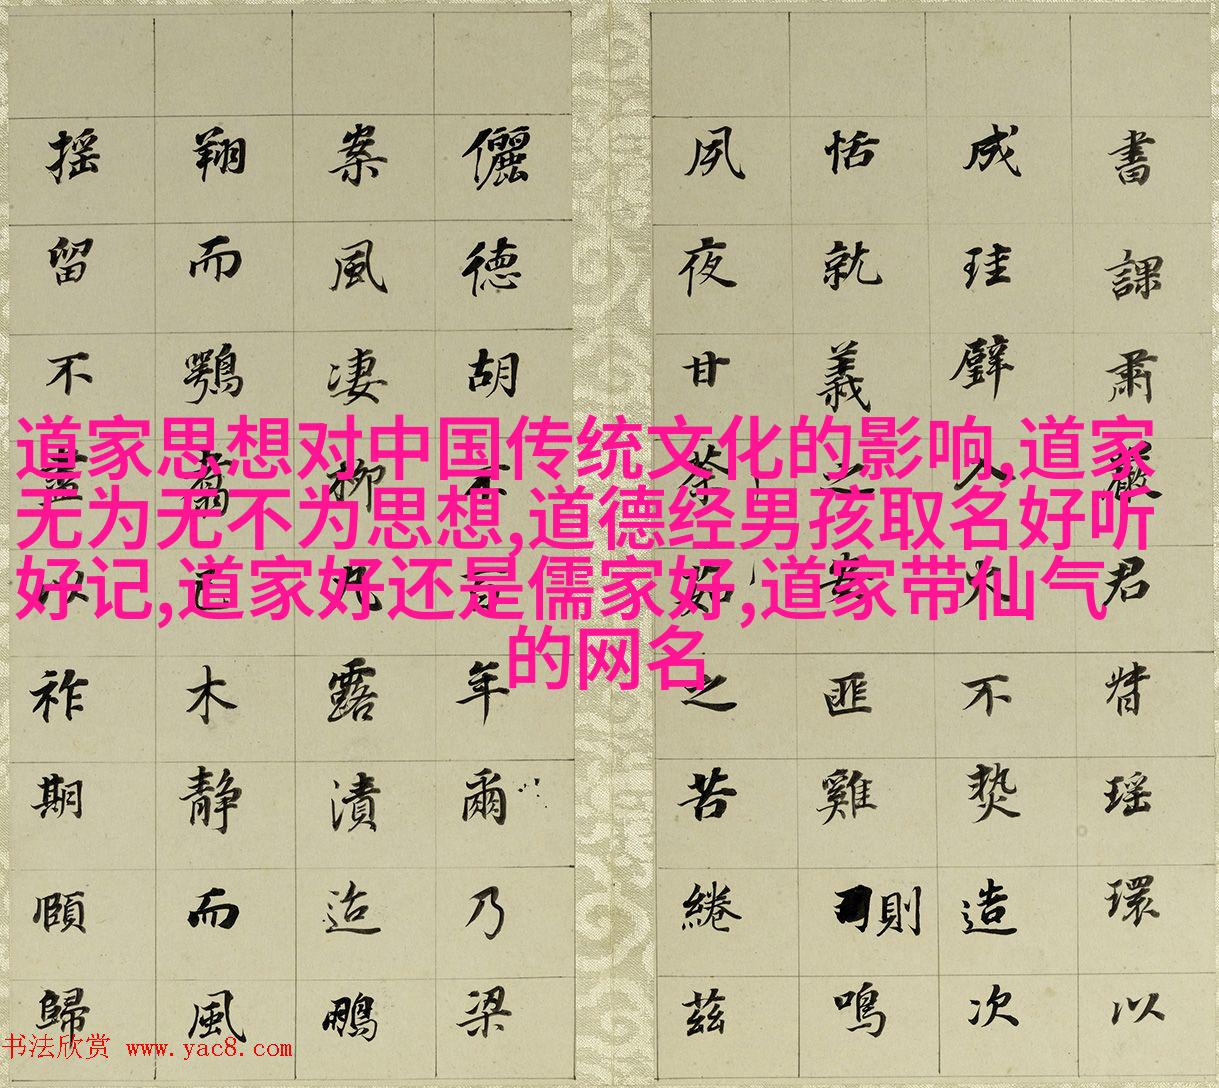 道家思想对中国传统文化的影响,道家
无为无不为思想,道德经男孩取名好听
好记,道家好还是儒家好,道家带仙气
的网名
書課肅君瑶環以
成珪璧不造次
恬就義之匪雞則鳴
夙夜甘荼如之苦綣茲
儷德胡年爾乃梁
案風淒柳露漬迨鵬
翔而鶚木靜而風
摇留不以祚期頤歸
书法欣赏 www.yac8.com